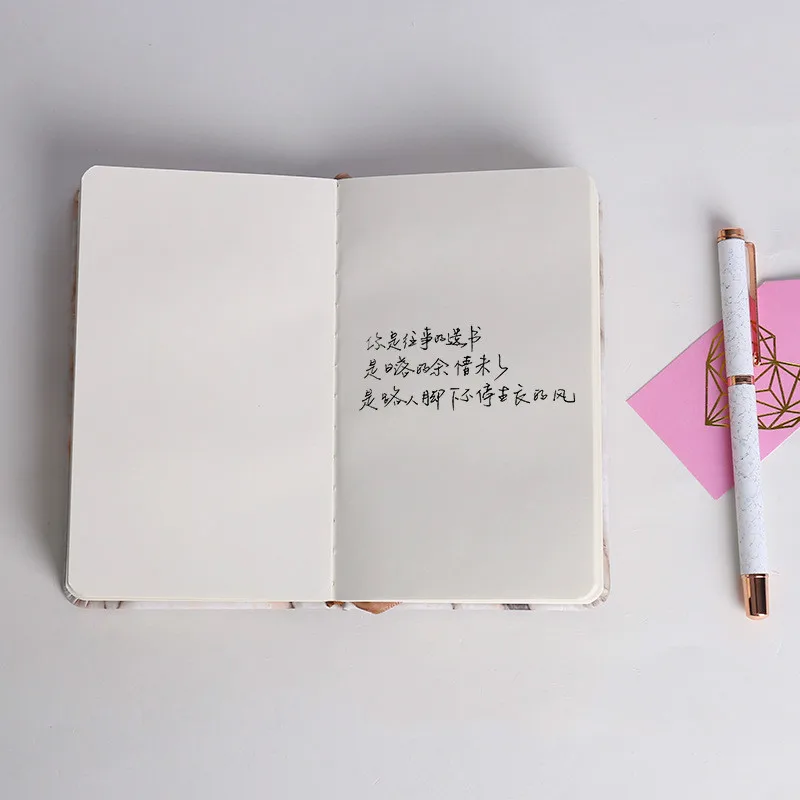 你是往事的遗书
是日落的余情未了
是路人脚下不停生长的风